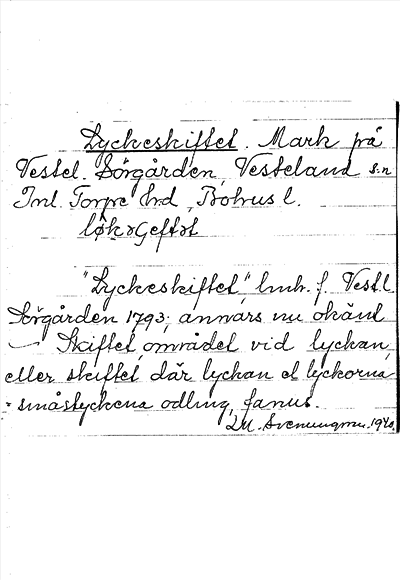 Lyckeskiftet. Mark på
Vestel. Sörgården, Vesteland s:n
Inl. Torpe hrd, Bohus l.
"Lyckeskiftet," lmh. f. Vestl.
Sörgården 1793; annars nu okänt
— Skiftet, området vid lyckan,
eller skiftet där lyckan el lyckorna
= småstyckena odling, fanns.
1940.